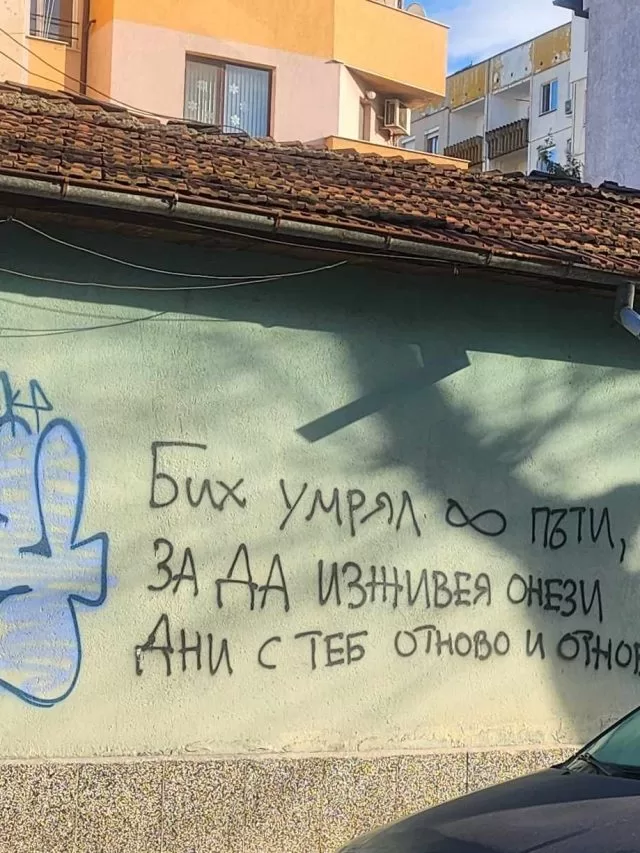 Бих умрял ∞ пъти,
ЗА ДА ИЗЖИВЕЯ ОНЕЗИ
ДНИ С ТЕБ ОТНОВО И ОТНОВ